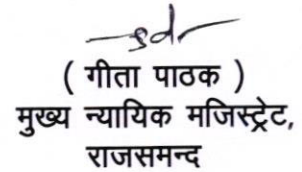 sd
( गीता पाठक )
मुख्य न्यायिक मजिस्ट्रेट,
राजसमन्द